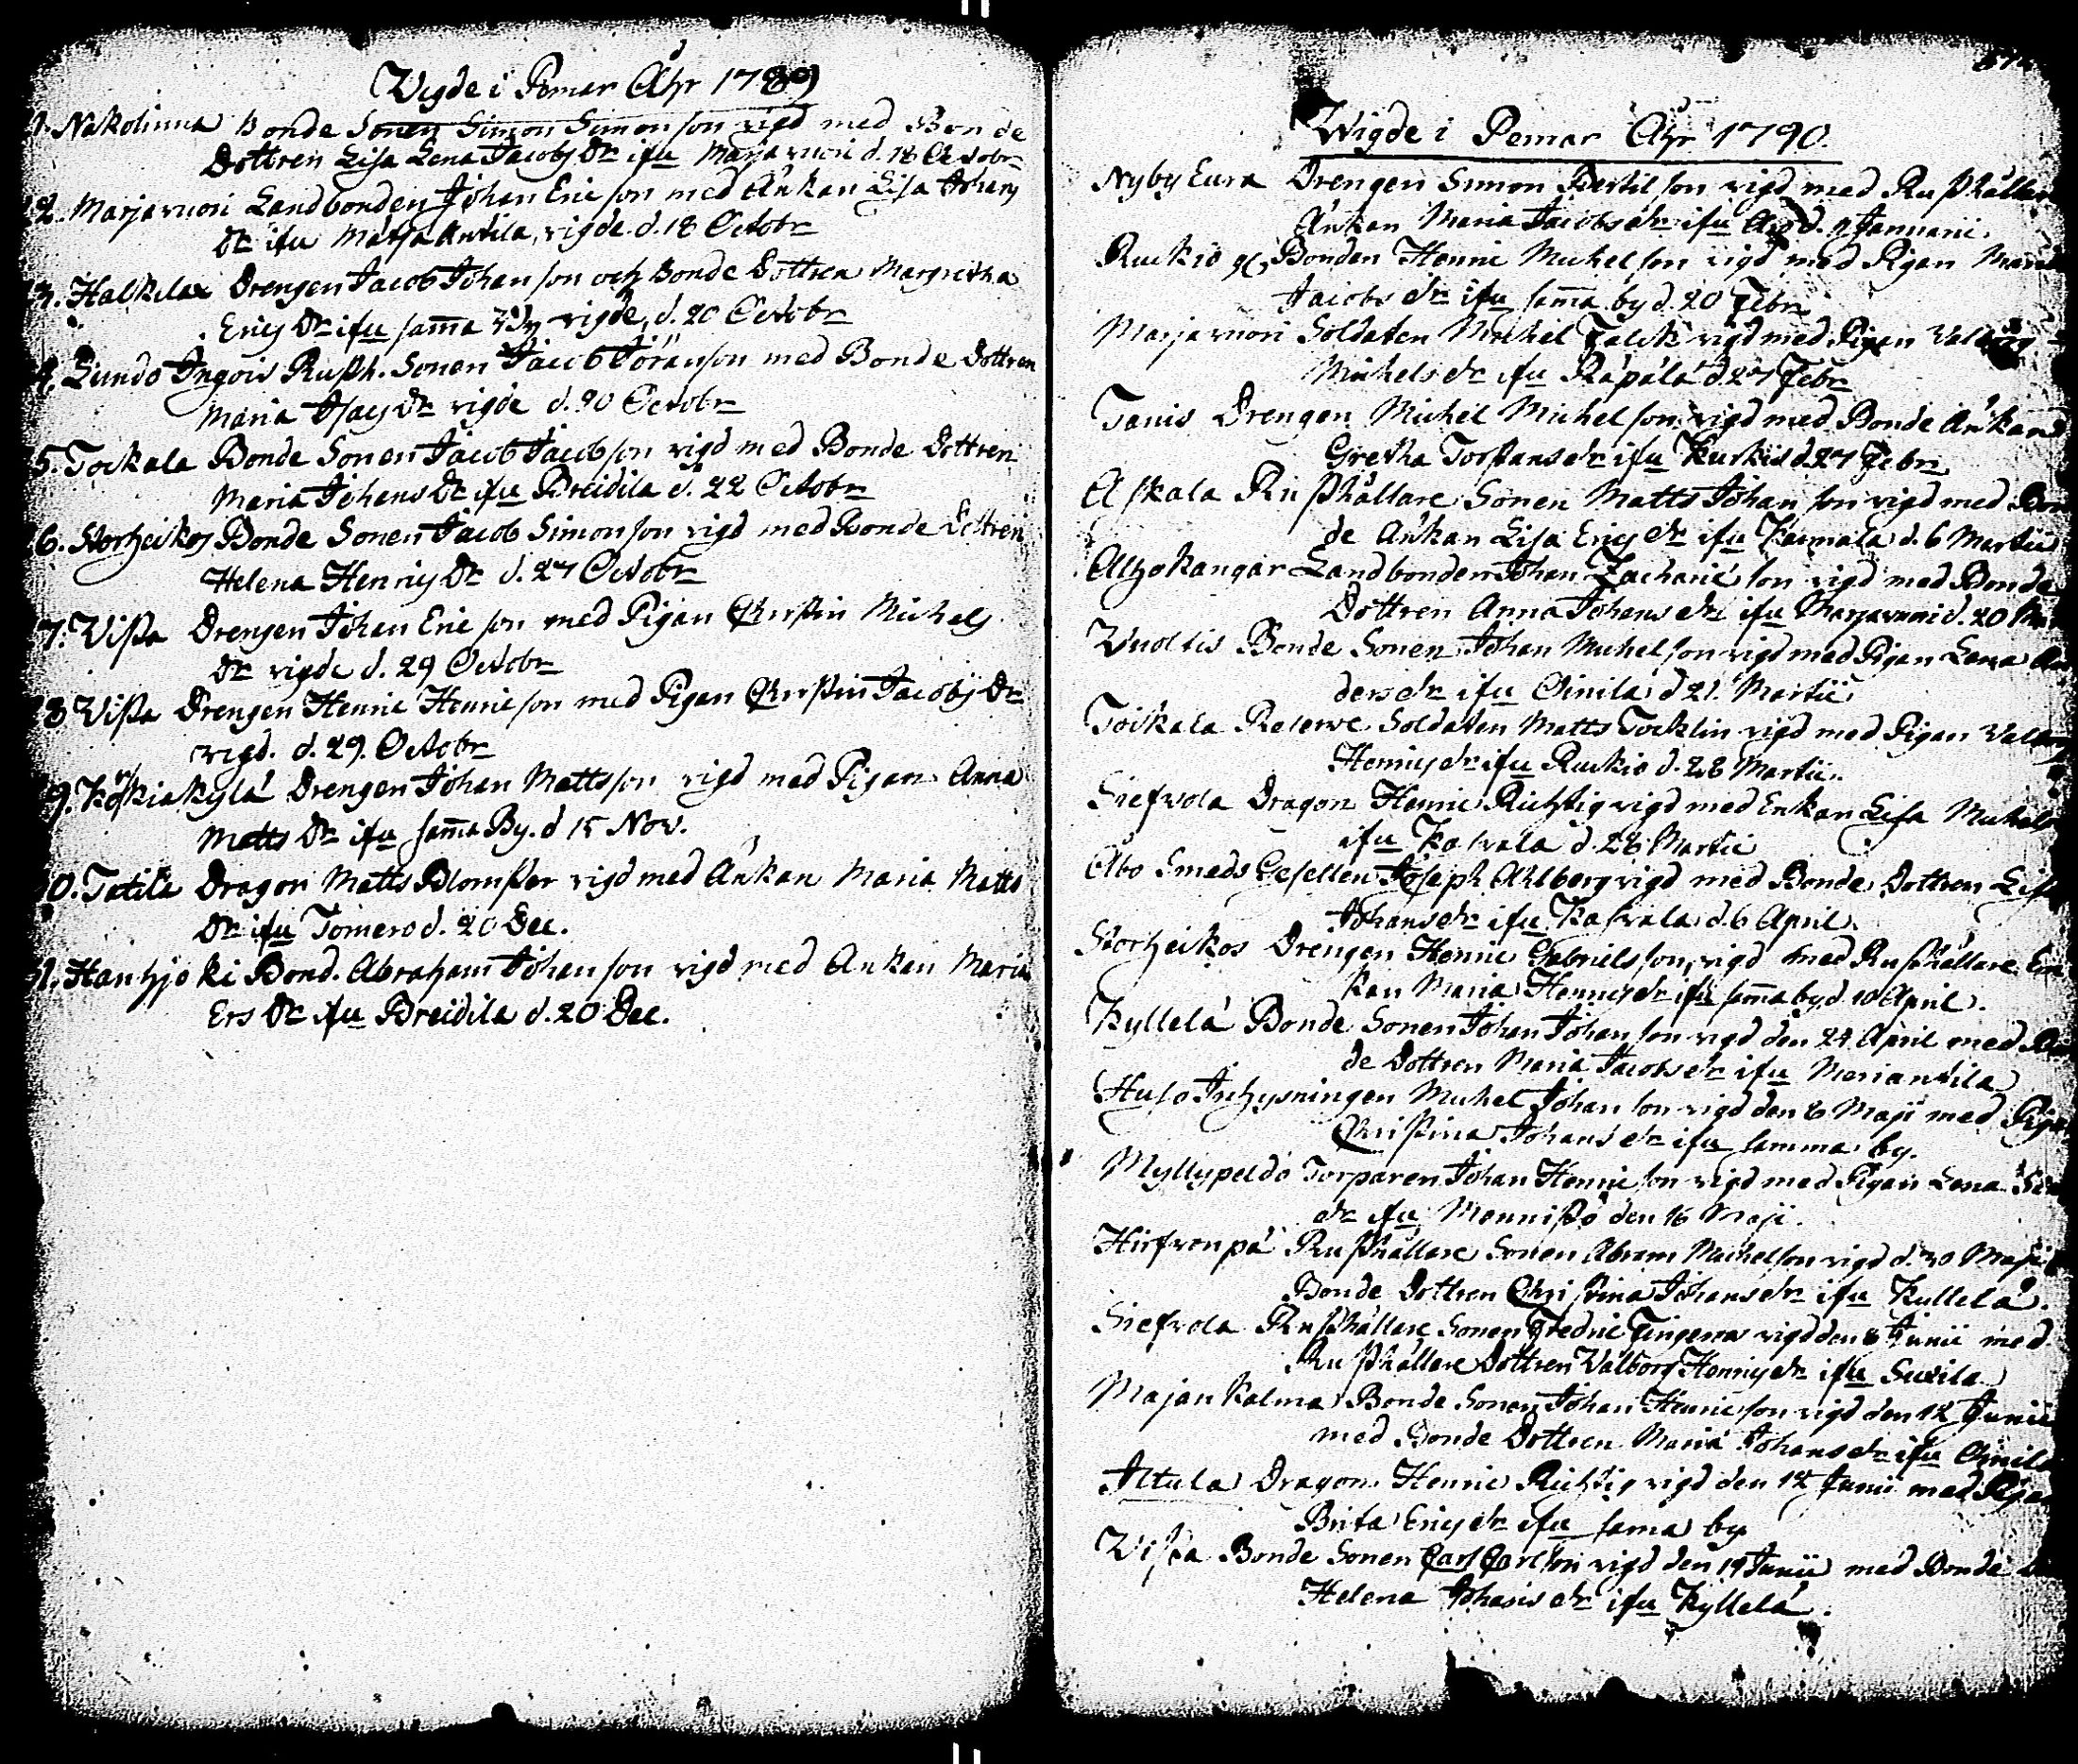 Wigde i Pemar Åhr 1789
1. Nakolinna Bonde Sonen Simon Simonson vigd med Bonde
Dottren Lisa Lena Jacobs Dr ifrån Marjavuori d. 18 Octobr
2. Marjavuori Landbonden Johan Ericson med Ankan Lisa Johans
Dr ifrån Marja Antila, vigde d. 18 Octobr
3. Halkilax Drengen Jacob Johanson och Bonde Dottren Margretha
Erics Dr ifrån sama By vigde d. 20 Octobr
4. Lundo Ingois Rusth. Sonen Jacob Jöranson med Bonde Dottren
Maria Isacs Dr vigde d. 20 Octobr
5. Tockala Bonde Sonen Jacob Jacobson vigd med Bonde Dottren
Maria Johans Dr ifrån Breidila d. 22 Octobr
6. Storheikos Bonde Sonen Jacob Simonson vigd med Bonde Dottren
Helena Henrics Dr d. 27 Octobr
7. Vista Drengen Johan Ericson med Pigan Christin Michels
Dr vigde d. 29 Octobr
8. Vista Drengen Henric Henricson med Pigan Christin Jacobs Dr
vigd. d. 29. Octobr
9. Drengen Johan Mattsson vigd med Pigan Anna
Matts Dr ifrån sama By. d 15 Nov.
10. Tatila Dragon Matts Blomster vigd med Ankan Maria Matts
Dr ifrån Tömero d. 20 Dec.
11. Hanhjoki Bond. Abraham Johanson vigd med Ankan Maria
Ers Dr ifrån Breidila d. 20 Dec.
Wigde i Pemar Åhr 1790.
Nyby Eura Drengen Simon Bertilson vigd med Rusthållare
Ankan Maria Jacobs dr ifrån d. 9 Januarii.
Ruskio Bonden Henric Michelson vigd med Pigan Maria
Jacobs dr ifrån sama by d. 20 Febr
Marjavuori Soldaten Michel Falck vigd med Pigan Valborg
Michels dr ifrån Rapala d 27 Febr
Tanis Drengen Michel Michelson vigd med Bonde Ankan
Gretha Torstans dr ifrån Kurkis d 27 Febr
Askala Rusthållare Sonen Matts Johanson vigd med Bon
de Ankan Lisa Erics dr ifrån Karmala d. 6 Martii
Alhokangar Landbonden Johan Zachariæson vigd med Bonde
Dottren Anna Johans dr ifrån Marjavuori d. 20
Vuoltis Bonde Sonen Johan Michelson vigd med Pigan Lena An
ders dr ifrån Oinila d 21. Martii
Toikala Reserve Soldaten Matts Tocklin vigd med Pigan Valborg
Henrics dr ifrån Ruskio d. 28 Martii.
Siefvola Dragon Henric Richtig vigd med Enkan Lisa Michels
ifrån Kasvala d. 28 Martii
Åbo Smeds Gesellen Joseph Ahlberg vigd med Bonde Dottren Lisa
Johans dr ifrån Kasvala d. 6 April.
Storheikos Drengen Henric Gabrielsson, vigd med Rusthållare En
kan Maria Henrics dr ifrån sama by d. 10 April.
Kyllelä Bonde Sonen Johan Johanson vigd den 24 April med Bon
de Dottren Maria Jacobs dr ifrån Mariantila
Huso Inhysningen Michel Johanson vigd den 8 Maji med Pigan
Christina Johans dr ifrån samma by.
Myllypeldo Torparen Johan Henricson vigd med Pigan Lena
dr ifrån Mennistö den 16 Maji.
Hirfvonpä Rusthållare Sonen Abram Michelson vigd d. 30 Maji
Bonde Dottren Christina Johans dr ifrån Kyllelä.
Siefvola Rusthållare Sonen Fredric Fingeros vigd den 8 Junii med
Rusthållare Dottren Valborg Henrics dr ifrån Suxila
Majankalma Bonde Sonen Johan Henricson vigd den 12 Junii
med Bonde Dottren Maria Johans dr ifrån Oinila
Ittula Dragon Henric Richtig vigd den 12 Junii med Pigan
Brita Erics dr ifrån sama by
Vista Bonde Sonen Carl Carlson vigd den 19 Junii med Bonde
Helena Johans dr ifrån Kyllelä.